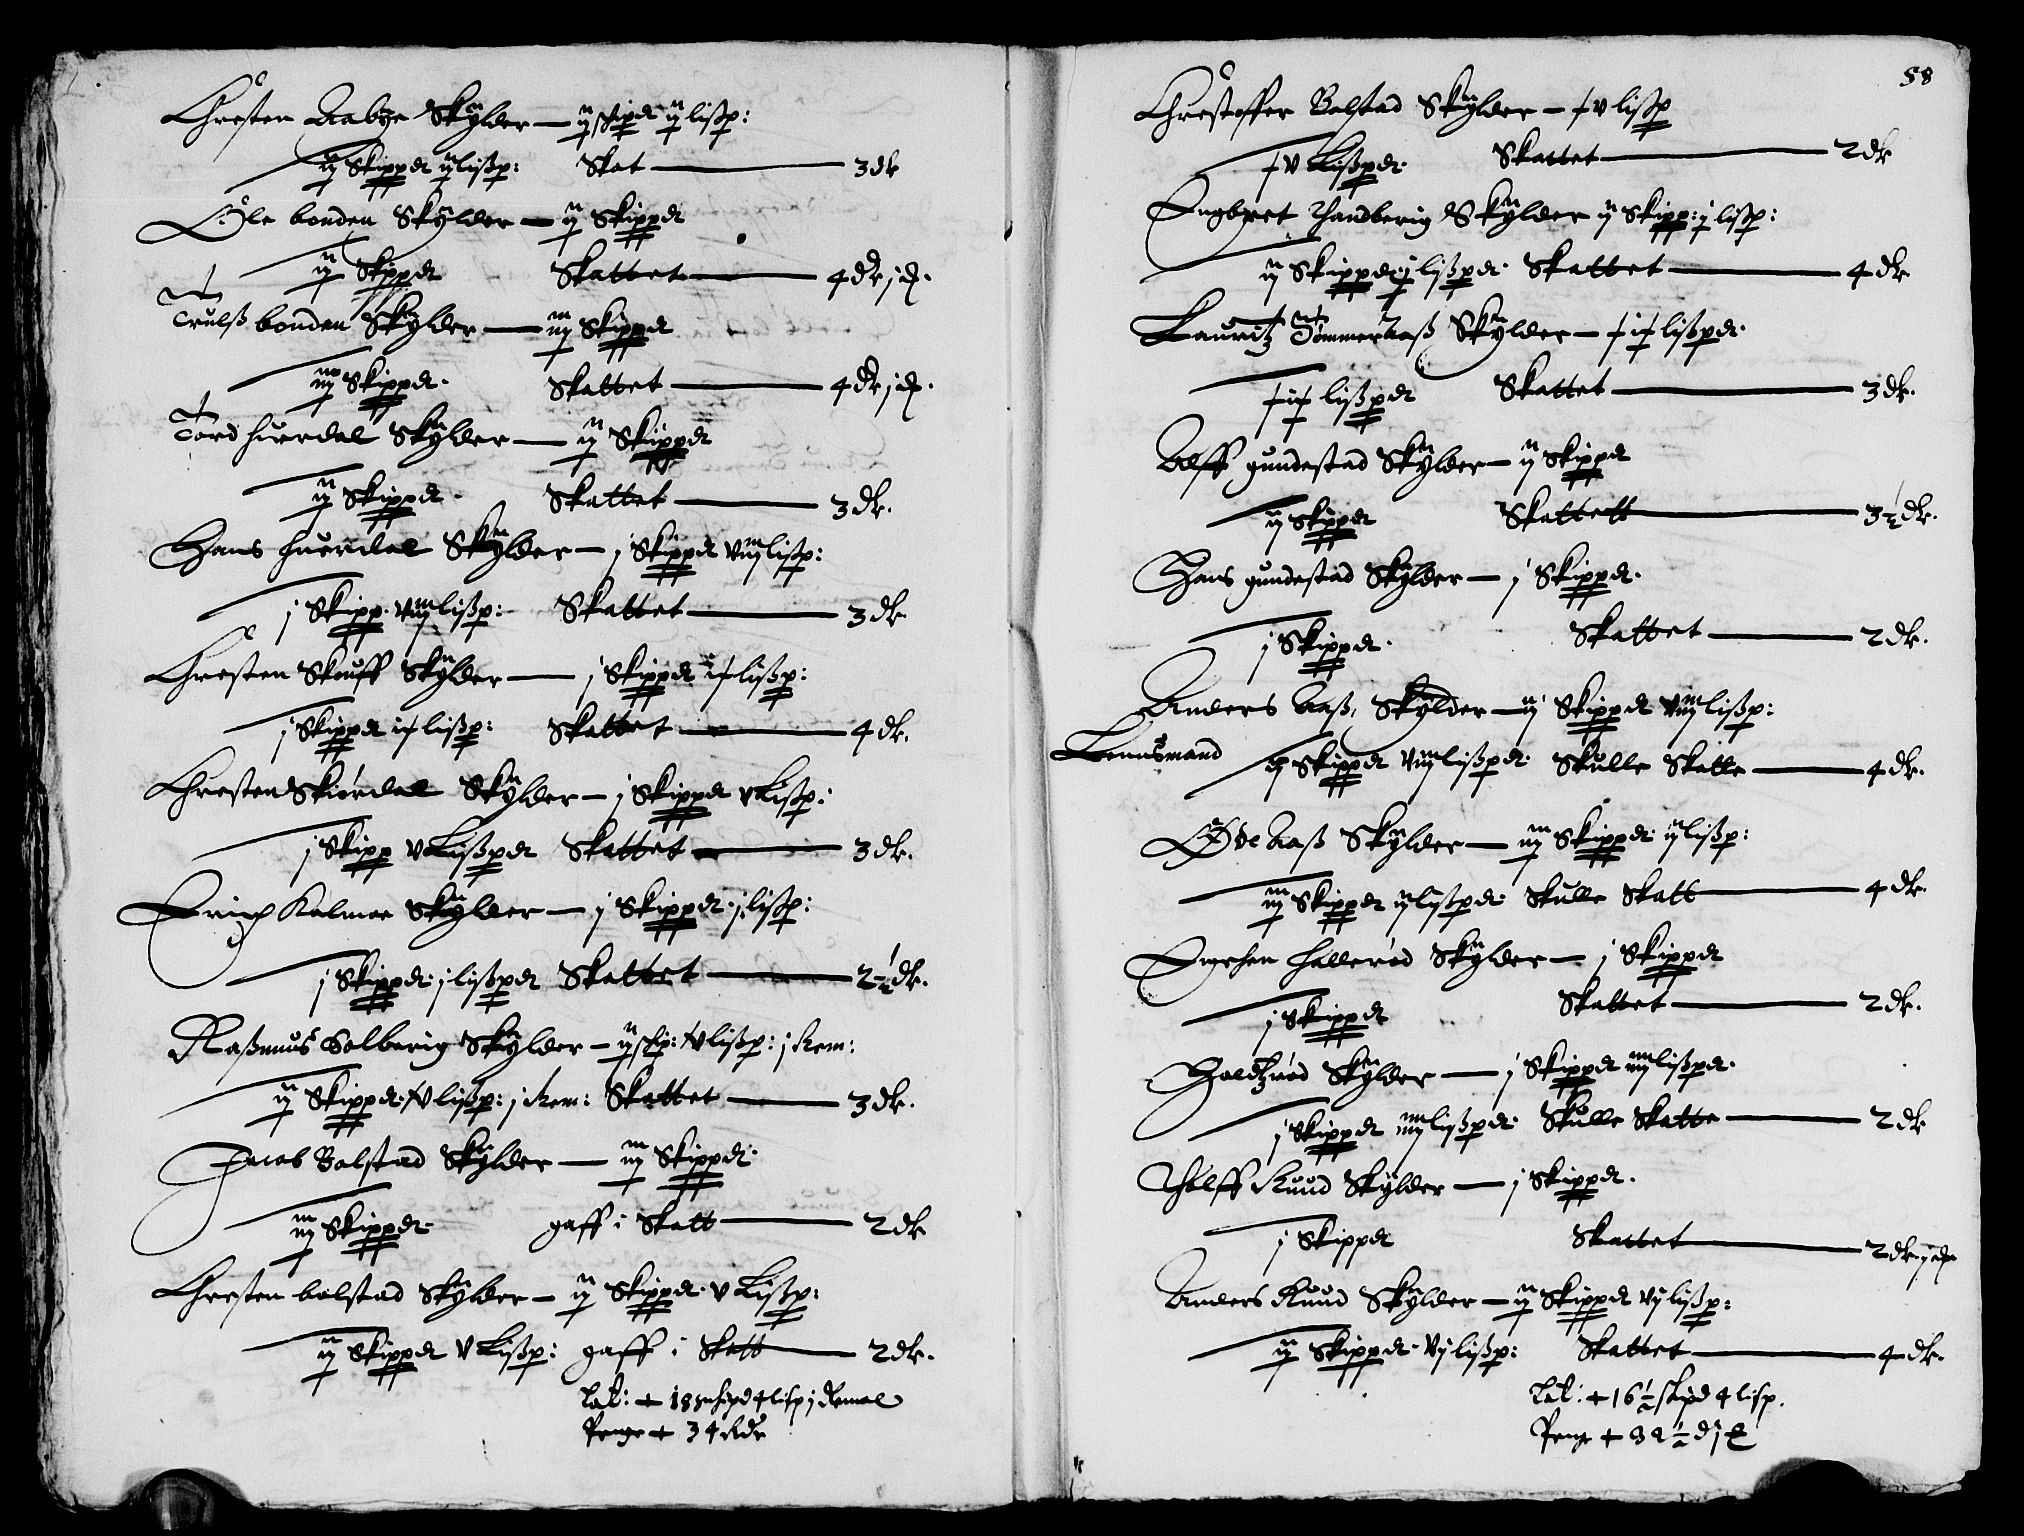 Chresten Aabye Skylder — ij skipd ij lißp:
ij Skippd ij lißp: Skat — 3 dlr
Ole bonden Skylder — ij Skippd
ij Skippd Skattet — 4 dlr j ort.
Trulß bonden Skylder — iij Skippd
iij Skippd. Skattet — 4 dlr j ort.
Tord huerdal Skylder — ij Skippd
ij Skippd. Skattet — 3 dlr.
Hans huerdal Skylder — j Skippd viij lißp:
j Skipp. viij lißp: Skattet — 3 dlr
Chresten Skouff Skylder — j Skippd ix lißp:
j Skippd ix lißp: Skattet — 4 dlr.
Chresten Skiørdal Skylder — j Skippd v Lißp:
j Skipp v Lißpd Skattet — 3 dlr.
Erich Kalmoe Skylder — j Skippd. j lißp:
j Skippd. j lißpd Skattet — 2½ dlr.
Raßmus Solberig Skylder — ij skp: xv lißp: j Rem:
ij Skippd. xv lißp: j Rem: Skattet — 3 dlr.
Jacob Bolstad Skylder — iij Skippd.
iij Skippd. gaff i Skatt — 2 dlr
Chresten bolstad Skylder — ij Skippd. v Lißp:
ij Skippd v Lißp: gaff i Skatt — 2 dlr.
Lat: + 4 lisp j Remal
Penge + 34 Rdr
58
Chrestoffer Bolstad Skylder — xv lißp
xv Lißpd. Skattet — 2 dlr
Engbret Thandberig Skylder ij Skipp: j lißp:
ij Skippd. j lißpd. Skattet — 4 dlr
Lauritz Tømmeraaß Skylder — xix lißpd.
xix lißpd Skattet — 3 dlr.
Alff gundestad Skylder — ij Skippd
ij Skippd Skattett — 3½ dlr.
Hans gundestad Skylder — j Skippd.
j Skippd. Skattet — 2 dlr.
Anders Aaß, Skylder — ij Skippd viij lißp:
Lennsmand ij Skippd viij lißpd. Skulle Skatte — 4 dlr.
Øde Aaß Skylder — iij Skippd. ij lißp:
iij Skippd ij lißpd. Skulle Skatt — 4 dlr.
Engehen hallerød Skylder — j Skippd
j Skippd Skattet — 2 dlr.
Holtzrød Skylder — j Skippd iiij lißpd.
j Skippd iiij lißpd. Skulle Skatte — 2 dlr
Tholff Ruud Skylder — j Skippd.
j Skippd Skattet — 2 dlr. j ort
Anders Ruud Skylder — ij Skippd vij lißp:
ij Skippd. vij lißp: Skattet — 4 dlr.
Lat: + 16½ skipd 4 lisp.
Penge + 32½ d j ort